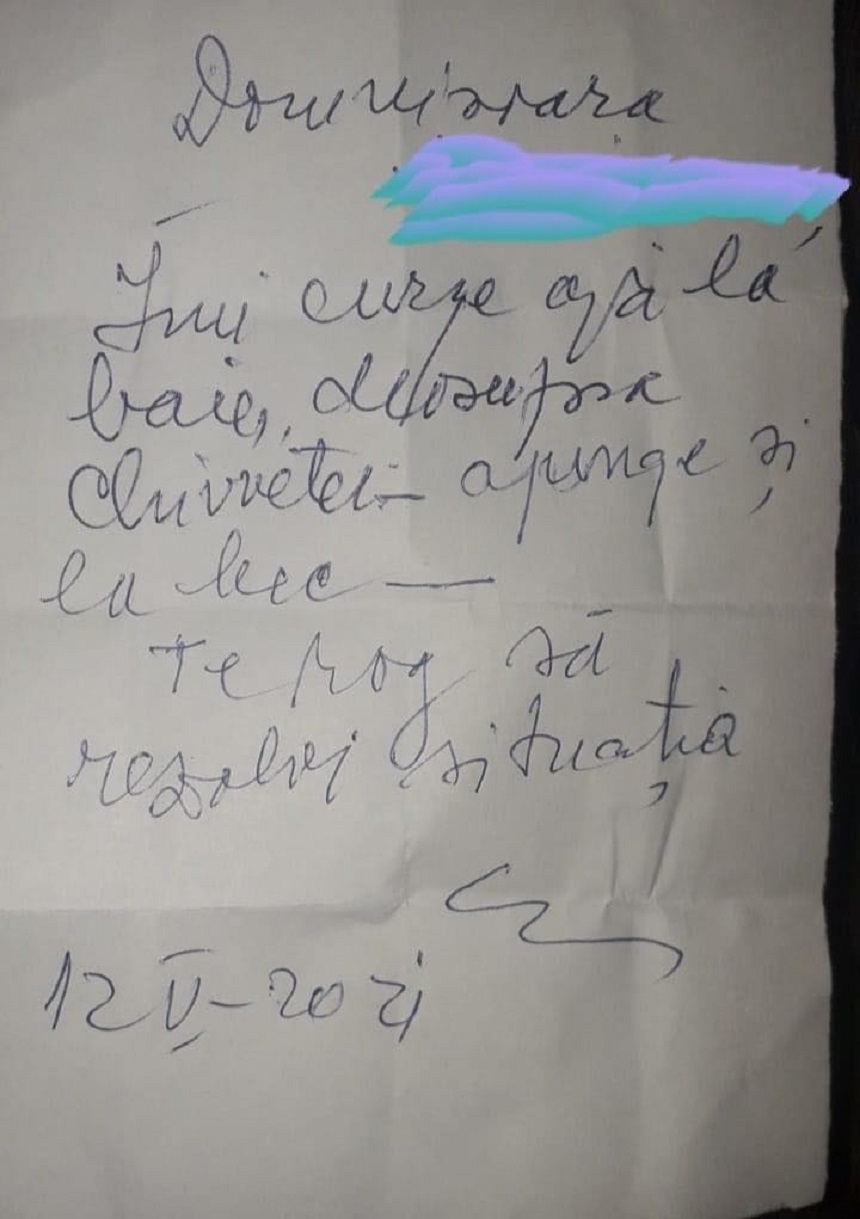 Domnișoara
Îmi curge apă la
baie, deasupra
chiuvetei – ajunge și
la bec —
Te rog să
rezolvi situația
12 V – 2021